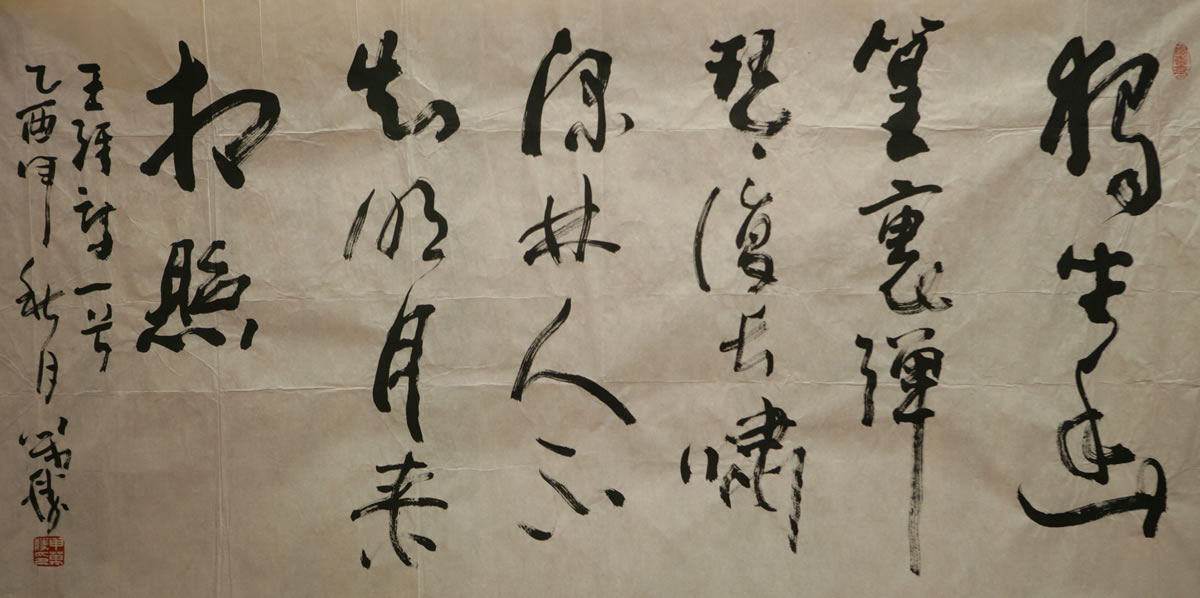 獨坐幽
篁裏彈
琴復長嘯
深林人不
知明月来
相照
王維詩一首
乙酉年秋月